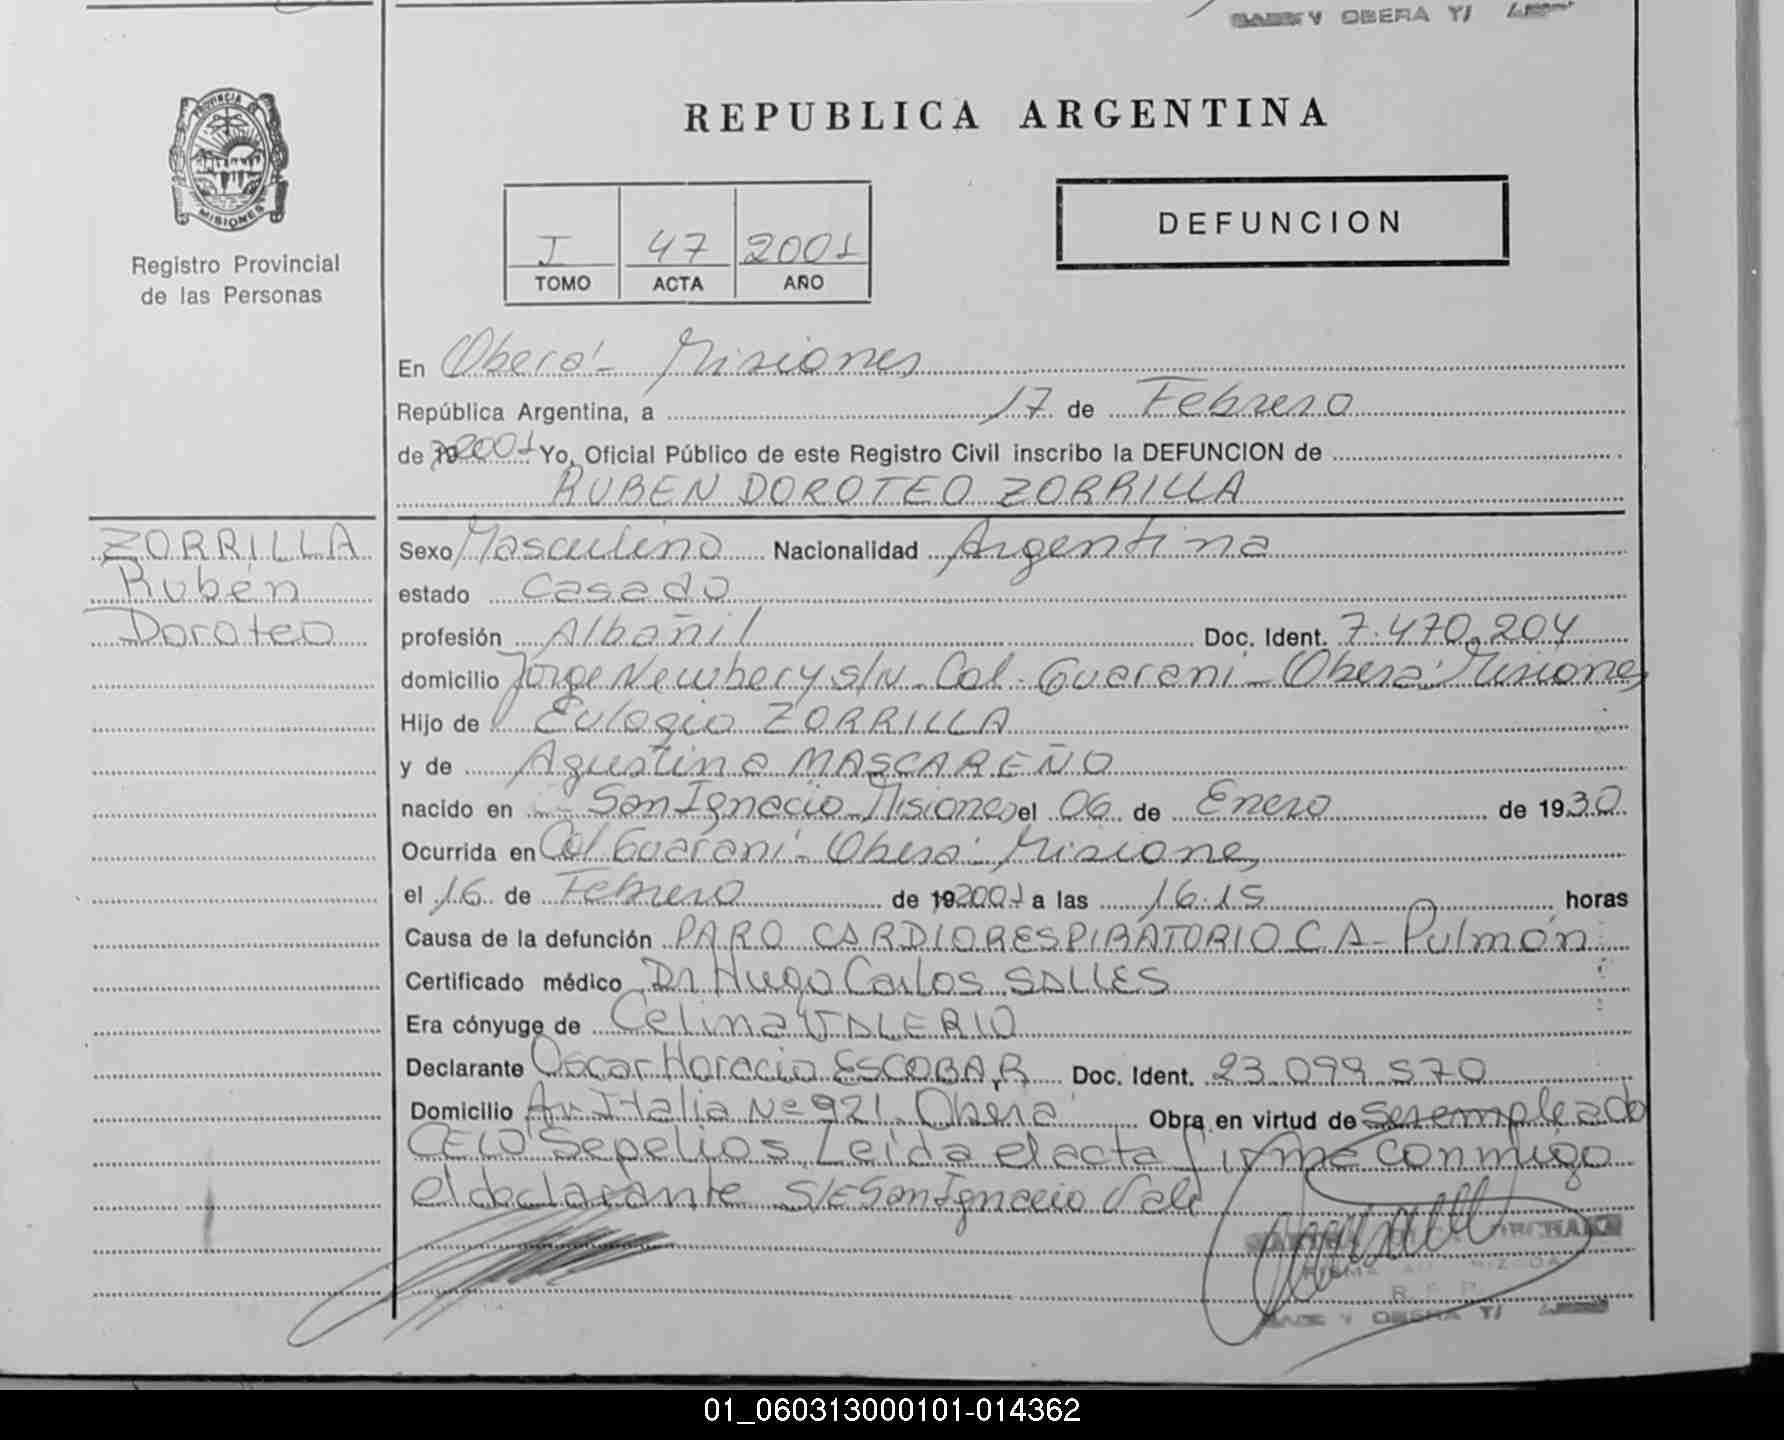 OBERA
PROVINCIA
MISIONES
Registro Provincial
de las Personas
REPUBLICA ARGENTINA
DEFUNCION
I 47 2001
TOMO ACTA AÑO
En Oberá - Misiones
República Argentina, a 17 de Febrero
de 2001 Yo, Oficial Público de este Registro Civil inscribo la DEFUNCION de
RUBEN DOROTEO ZORRILLA
ZORRILLA
Rubén
Doroteo
Sexo Masculino Nacionalidad Argentina
estado Casado
profesión Albañil Doc. Ident. 7.470.204
domicilio Jorge Newbery s/N - Col. Guaraní - Oberá Misiones
Hijo de Eulogio ZORRILLA
y de Agustina MASCAREÑO
nacido en San Ignacio Misiones el 06 de Enero de 1930
Ocurrida en Col Guaraní - Oberá - Misiones
el 16 de Febrero de 192001 a las 16.15 horas
Causa de la defunción PARO CARDIORESPIRATORIO CA - Pulmón
Certificado médico Dr Hugo Carlos SALLES
Era cónyuge de Celina VALERIO
Declarante Oscar Horacio ESCOBAR Doc. Ident. 23.099.570
Domicilio Av. Italia Nº 921 Oberá Obra en virtud de ser empleado
Sepelios. Leída el acta firma conmigo
el declarante S/E San Ignacio Vale
R. P.
OBERA
01_060313000101-014362